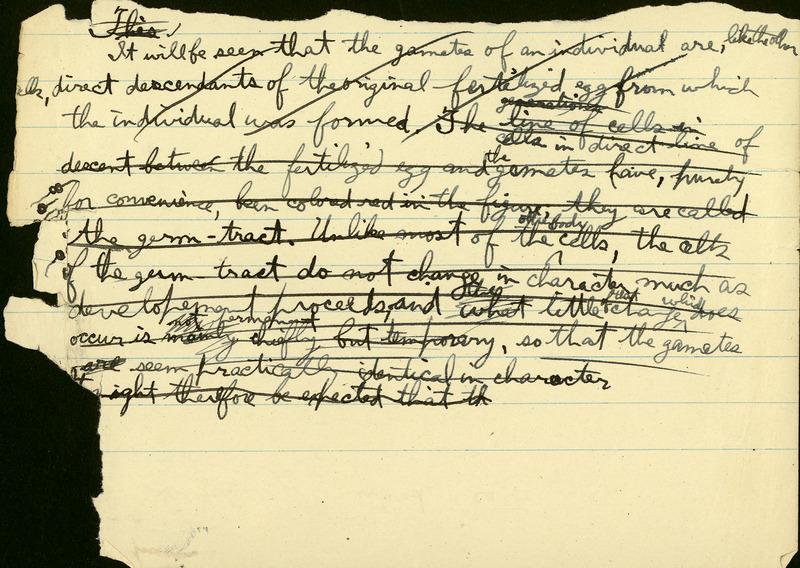 This
It will be seen that the gametes of an individual are, like the other
cells, direct descendants of the original fertilized egg from which
the individual was formed. The line of cells in
generations
cells in direct line of
descent between the fertilized egg and the gametes have, purely
for convenience, been colored red in the figure; they are called
the germ-tract. Unlike most of the other body cells, the cells
of the germ-tract do not change in character much as
developement proceeds, and what little that change which does
not permanent
occur is mainly chiefly but temporary, so that the gametes
are seem practically identical in character
It might therefore be expected that th